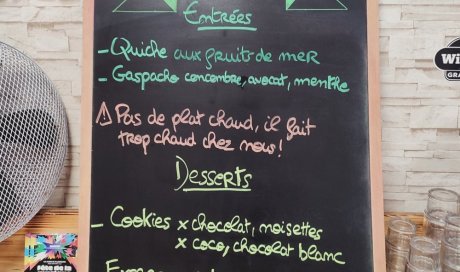 Entrées
- Quiche aux fruits de mer
- Gaspacho concombre, avocat, menthe
⚠ Pas de plat chaud, il fait
trop chaud chez nous!
Desserts
- Cookies x chocolat, noisettes
x coco, chocolat blanc
Wi
GRA